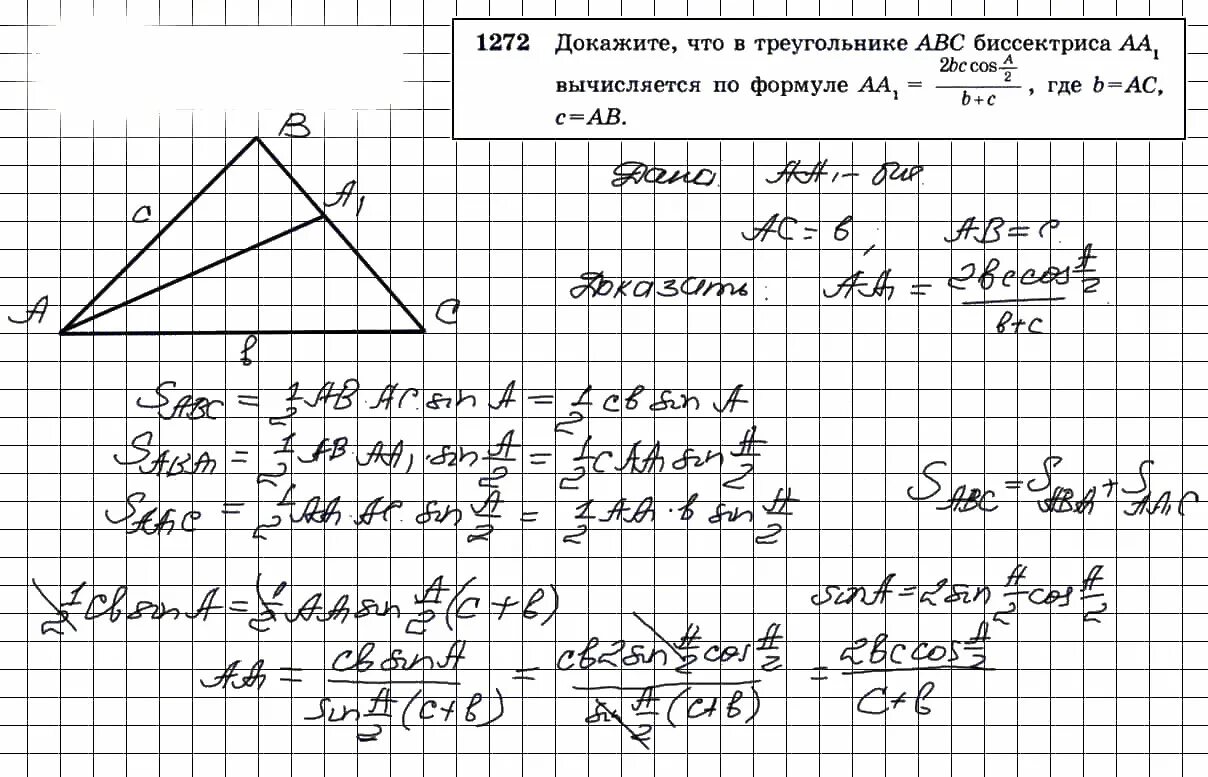 1272 Докажите, что в треугольнике ABC биссектриса AA₁
вычисляется по формуле AA₁ = 2bc cos A/2 / b+c, где b=AC,
c=AB.
B
A₁
c
A
C
в
Дано: AA₁ – бис.
AC = в, AB = c
Доказать: AA₁ = 2вc cos A/2 / в+c
S_ABC = 1/2 AB·AC·sin A = 1/2 cв sin A
S_ABA₁ = 1/2 AB·AA₁·sin A/2 = 1/2 c AA₁ sin A/2
S_AA₁C = 1/2 AA₁·AC·sin A/2 = 1/2 AA₁·в sin A/2
S_ABC = S_ABA₁ + S_AA₁C
1/2 cв sin A = 1/2 AA₁ sin A/2 (c+в)
sin A = 2 sin A/2 cos A/2
AA₁ = cв sin A / sin A/2 (c+в) = cв 2 sin A/2 cos A/2 / sin A/2 (c+в) = 2вc cos A/2 / c+в